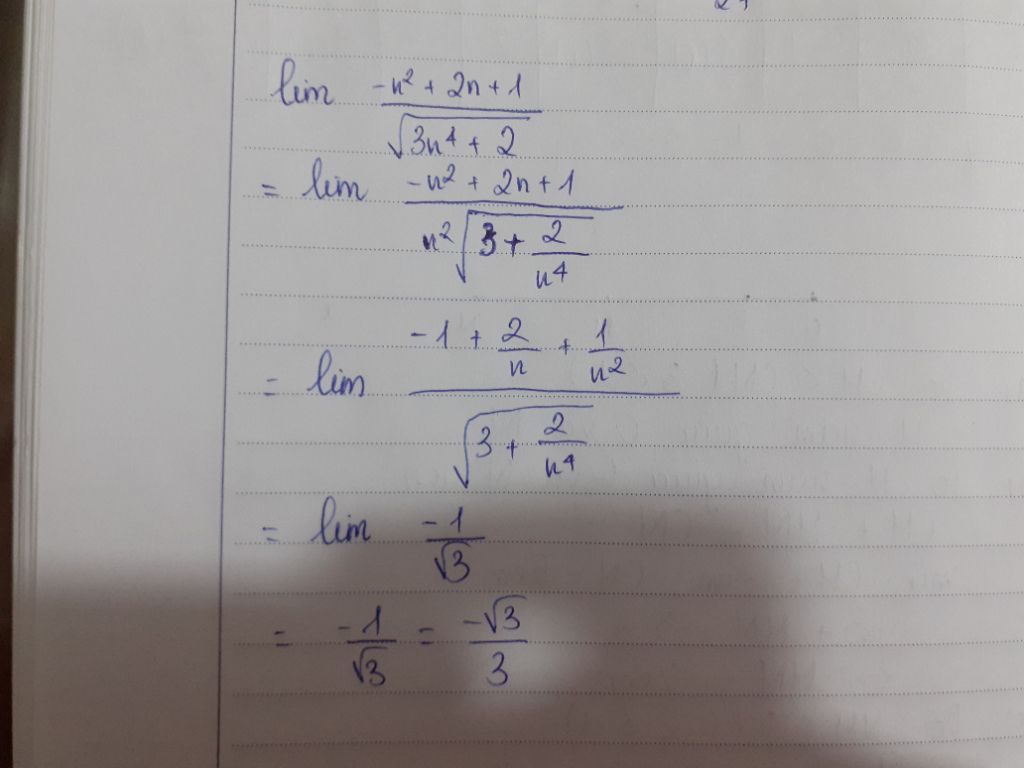 lim (-n² + 2n + 1)/√(3n⁴ + 2)
= lim (-n² + 2n + 1)/(n²√(3 + 2/n⁴))
= lim (-1 + 2/n + 1/n²)/√(3 + 2/n⁴)
= lim -1/√3
= -1/√3 = -√3/3